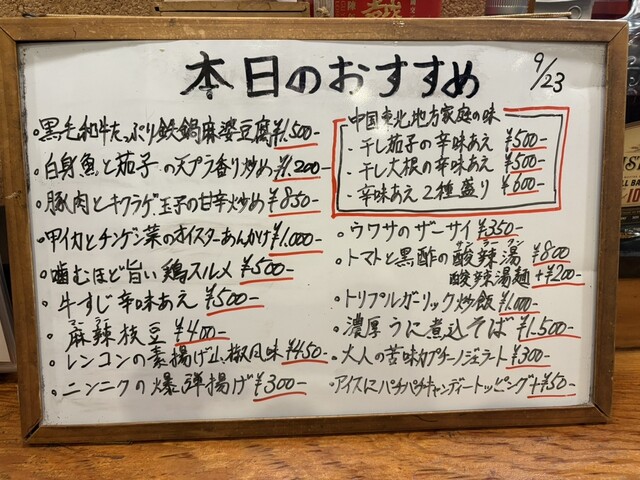 本日のおすすめ
9/23
・黒毛和牛たっぷり鉄鍋麻婆豆腐¥1,500-
・白身魚と茄子の天プラ香り炒め¥1.200-
・豚肉とキクラゲ玉子の甘辛炒め¥850-
・甲イカとチンゲン菜のオイスターあんかけ¥1.000-
・噛むほど旨い鶏スルメ ¥500-
・牛すじ辛味あえ ¥500-
・麻辣枝豆 ¥400-
・レンコンの素揚げ山椒風味¥450-
・ニンニクの爆弾揚げ¥300-
中国東北地方家庭の味
・干し茄子の辛味あえ ¥500-
・干し大根の辛味あえ ¥500-
・辛味あえ2種盛り ¥600-
・ウワサのザーサイ ¥350-
・トマトと黒酢の酸辣湯 ¥800
酸辣湯麺 +¥200-
・トリプルガーリック炒飯 ¥1,000-
・濃厚うに煮込そば ¥1,500-
・大人の苦味カプチーノジェラート ¥300-
・アイスにパチパチキャンディートッピング+¥50-